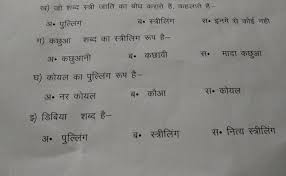 ख) जो शब्द स्त्री जाति का बोध कराते है, कहलाते है–
अ• पुल्लिंग ब• स्त्रीलिंग स• इनमे से कोई नही
ग) कछुआ शब्द का स्त्रीलिंग रूप है–
अ• कछुआनी ब• कछायी स• मादा कछुआ
घ) कोयल का पुल्लिंग रूप है–
अ• नर कोयल ब• कौआ स• कोयल
इ) डिबिया शब्द है–
अ• पुल्लिंग ब• स्त्रीलिंग स• नित्य स्त्रीलिंग